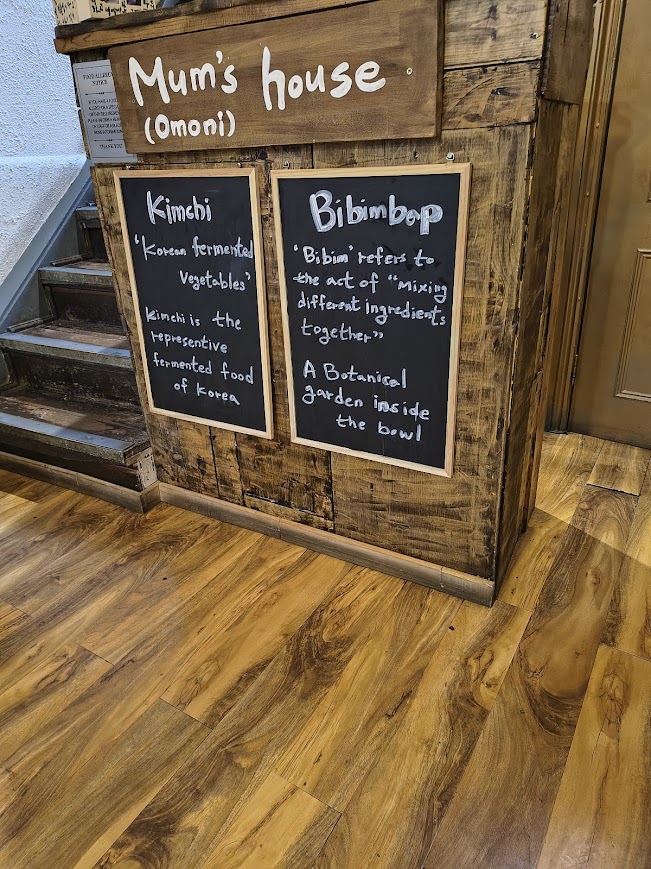 Mum's house
(Omoni)
FOOD ALLERGY
NOTICE
THANK YOU
Kimchi
"Korean fermented
Vegetables"
Kimchi is the
representive
fermented food
of Korea
Bibimbap
'Bibim' refers to
the act of "Mixing
different ingredients
together"
A Botanical
garden inside
the bowl